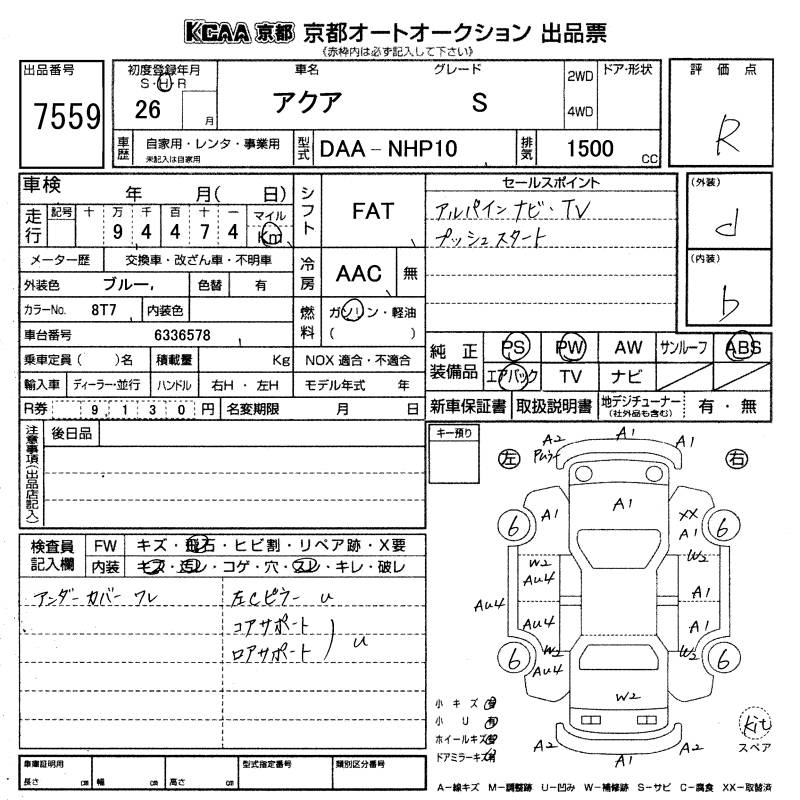 KCAA 京都 京都オートオークション 出品票
《赤枠内は必ず記入して下さい》
出品番号
7559
初度登録年月
S・H・R
26 月
車名
アクア
グレード
S
2WD
4WD
ドア・形状
評価点
R
車歴
自家用・レンタ・事業用
未記入は自家用
型式
DAA-NHP10
排気
1500 CC
車検 年 月( 日)
走行
記号 十 万 千 百 十 一 マイル
9 4 4 7 4 Km
シフト
FAT
セールスポイント
アルパイン ナビ・TV
プッシュスタート
(外装)
d
(内装)
b
メーター歴 交換車・改ざん車・不明車
冷房
AAC 無
外装色 ブルー, 色替 有
カラーNo. 8T7 内装色
燃料
ガソリン・軽油
( )
車台番号 6336578
乗車定員( )名 積載量 Kg NOX 適合・不適合
輸入車 ディーラー・並行 ハンドル 右H・左H モデル年式 年
R券 9,130円 名変期限 月 日
純正装備品
PS PW AW サンルーフ ABS
エアバック TV ナビ
新車保証書 取扱説明書 地デジチューナー
(社外品も含む)
有・無
注意事項(出品店記入)
後日品
キー預り
左
右
A2
A1
A2
A1
A1
XX
A1
6
6
W2
AU4
W2
A1
AU4
AU4
A1
W2
AU4
W2
6
6
W2
A2
A1
A2
検査員記入欄
FW キズ・飛石・ヒビ割・リペア跡・X要
内装 キズ・汚レ・コゲ・穴・スレ・キレ・破レ
アンダーカバー ワレ
左Cピラー U
コアサポート
ロアサポート
U
小キズ 有
小U 有
ホイールキズ 有
ドアミラーキズ 有
kit
スペア
車庫証明用
長さ cm 幅 cm 高さ cm
型式指定番号
類別区分番号
A-線キズ M-調整跡 U-凹み W-補修跡 S-サビ C-腐食 XX-取替済